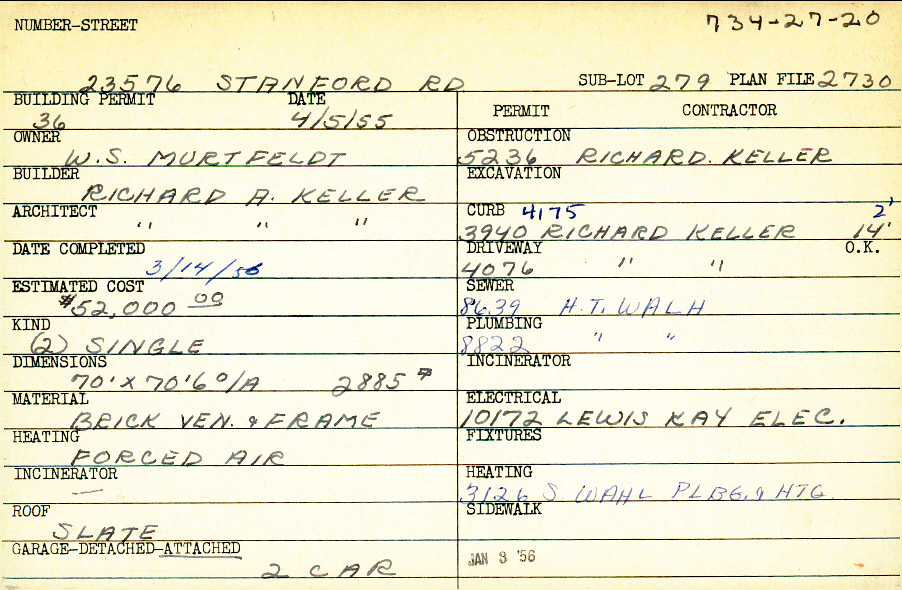 734-27-20
NUMBER-STREET
23576 STANFORD RD
SUB-LOT 279 PLAN FILE 2730
BUILDING PERMIT DATE
36 4/5/55
OWNER
W.S. MURTFELDT
BUILDER
RICHARD A. KELLER
ARCHITECT
" " "
DATE COMPLETED
3/14/56
ESTIMATED COST
$52,000 00
KIND
(2) SINGLE
DIMENSIONS
70' X 70'6 O/A 2885
MATERIAL
BRICK VEN. & FRAME
HEATING
FORCED AIR
INCINERATOR
—
ROOF
SLATE
GARAGE-DETACHED-ATTACHED
2 CAR
PERMIT CONTRACTOR
OBSTRUCTION
5236 RICHARD. KELLER
EXCAVATION
CURB 4175 2'
3940 RICHARD KELLER 14'
DRIVEWAY O.K.
4076 " "
SEWER
8639 H.T. WALH
PLUMBING
8822 " "
INCINERATOR
ELECTRICAL
10172 LEWIS KAY ELEC.
FIXTURES
HEATING
3126 S. WAHL PLBG. & HTG
SIDEWALK
JAN 3 '56